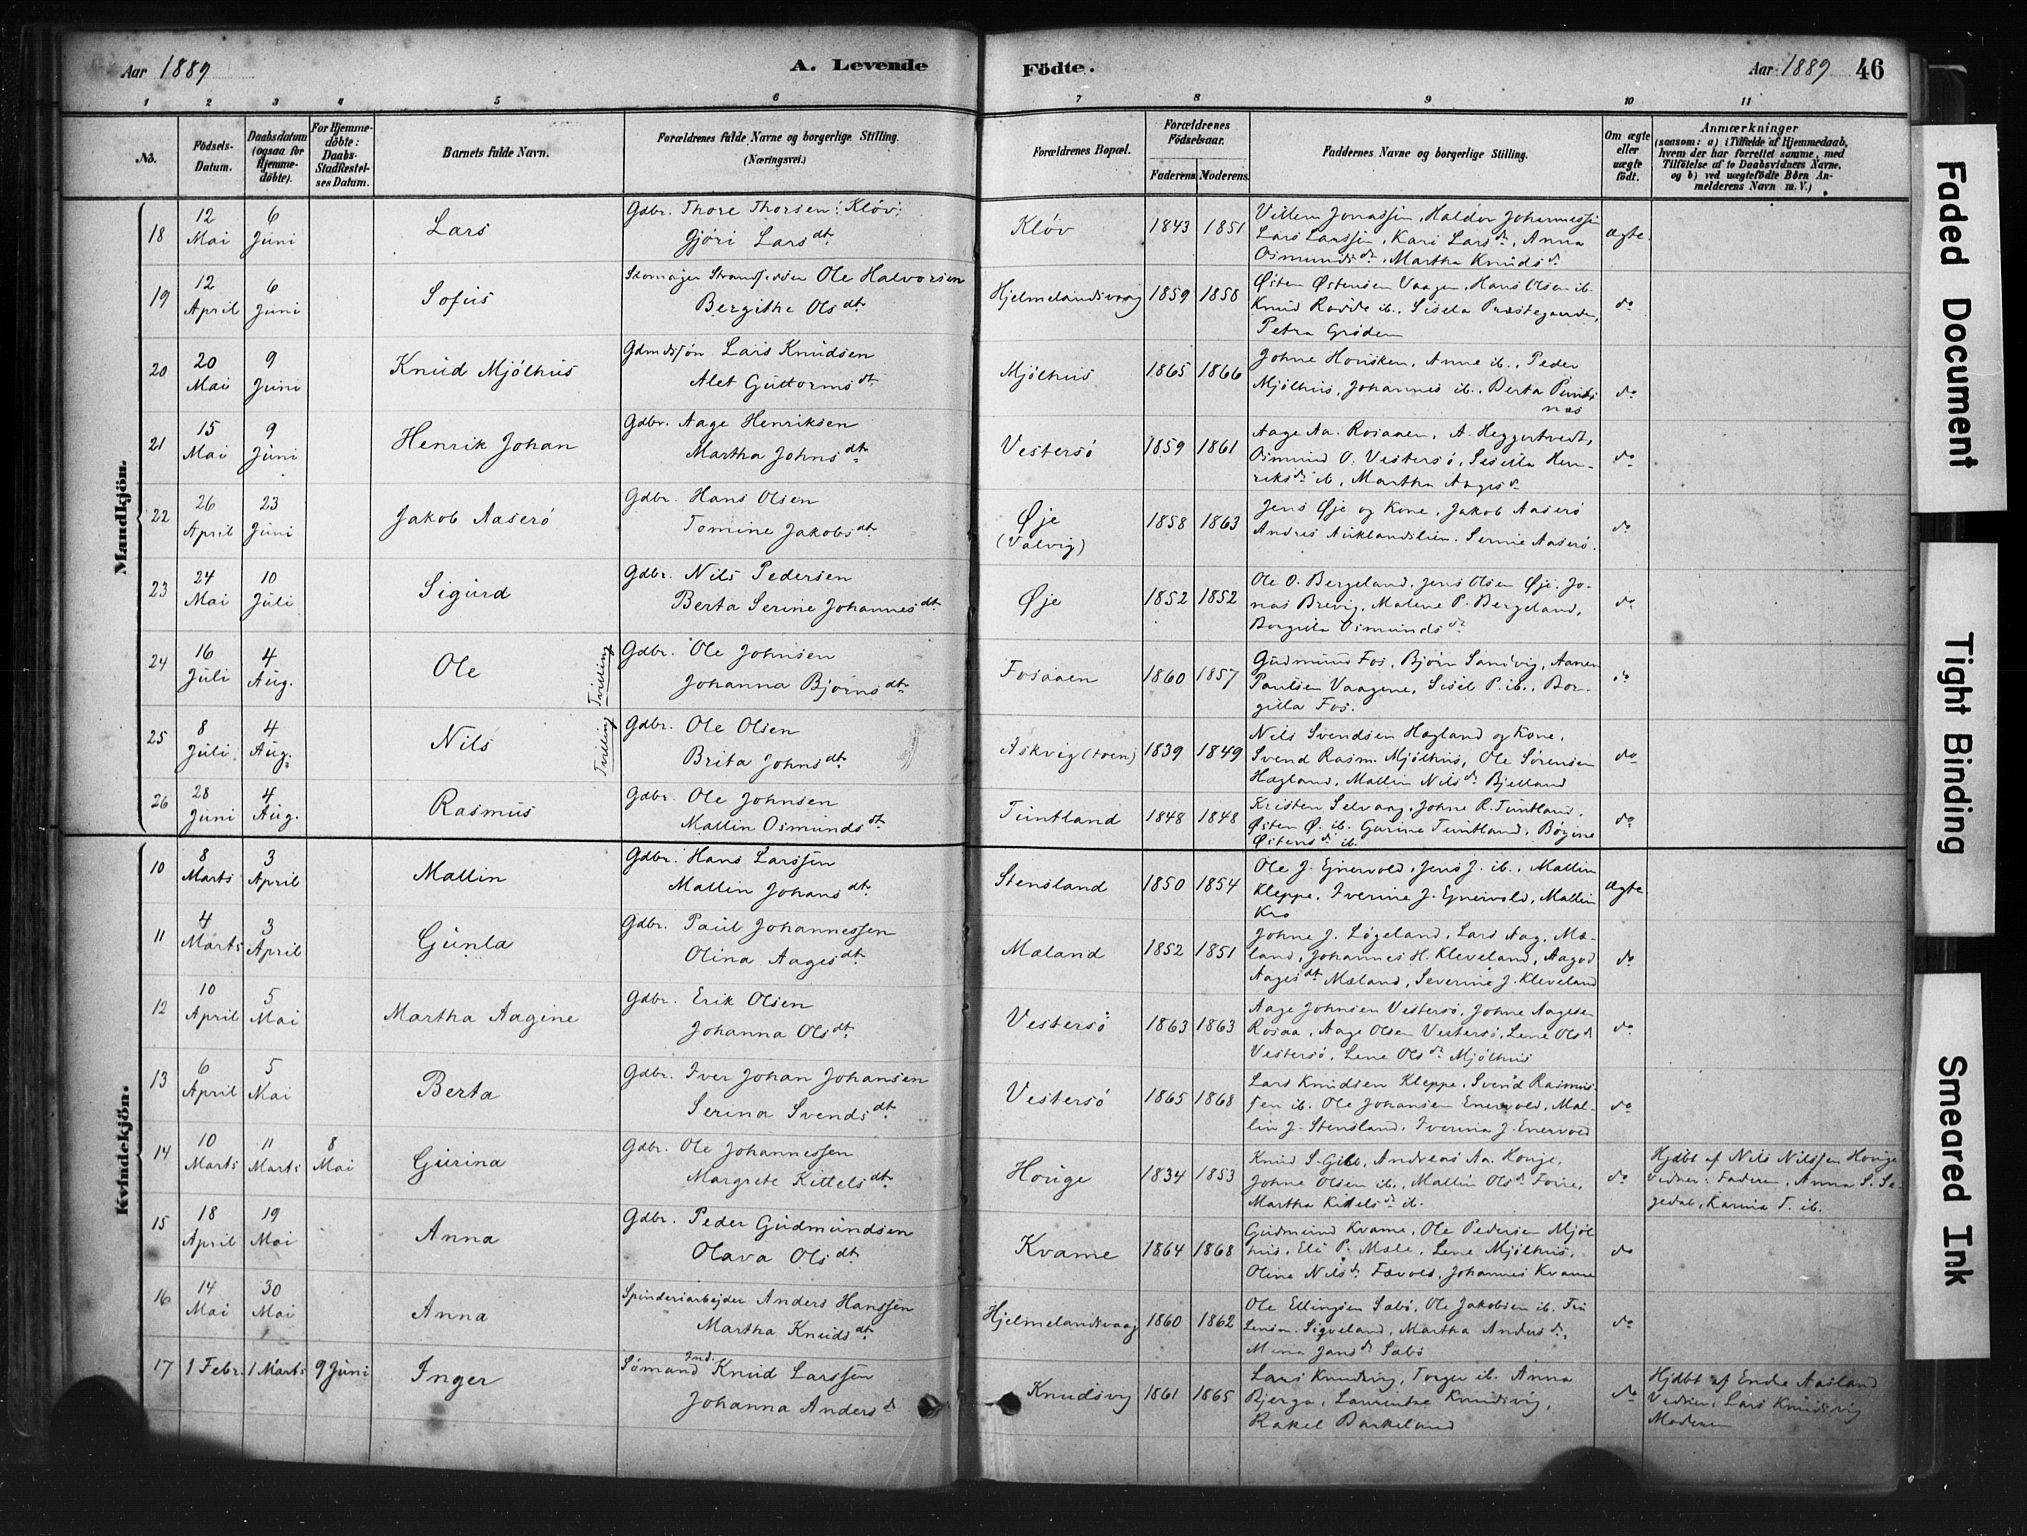 Aar 1889
A. Levende Födte.
Aar 1889 46
1 2 3 4 5 6 7 8 9 10 11
No.
Födsels-Datum.
Daabsdatum (ogsaa for Hjemme-döbte).
For Hjemme-döbte: Daabs-Stadfæstel-ses Datum.
Barnets fulde Navn.
Forældrenes fulde Navne og borgerlige Stilling.
(Næringsvei.)
Forældrenes Bopæl.
Forældrenes Födselsaar.
Faderens Moderens
Faddernes Navne og borgerlige Stilling.
Om ægte eller uægte födt.
Anmærkninger
(saasom: a) i Tilfælde af Hjemmedaab, hvem der har forrettet samme, med Tilföielse af to Daabsvidners Navne, og b) ved uægtefödte Börn Anmelderens Navn m. V.)
Mandkjön.
18 12 Mai 6 Juni Lars Gdbr. Thore Thorsen Kløv,
Gjöri Larsdt. Kløv 1843 1851 Villem Jonassen, Haldor Johannessen
Lars Larssen, Kari Larsd., Anna ægte
Osmundsdt., Martha Knudsd.
19 12 April 6 Juni Sofus Skomager Strandsidder Ole Halvorsen
Bergithe Olsdt. Hjelmelandsvaag 1859 1858 Østen Østensen Vaagen, Hans Olsen ib.
Knud Rødde ib. Sisela Præstegaarden, do
Petra Grøden
20 20 Mai 9 Juni Knud Mjölhus Gdmdssøn Lars Knudsen
Alet Guttormsdt. Mjölhus 1865 1866 Johne Housken, Anne ib., Peder
Mjölhus, Johannes ib., Berta do
21 15 Mai 9 Juni Henrik Johan Gdbr. Aage Henriksen
Martha Johnsdt. Vestersö 1859 1861 Aage Aa. Rosaaen, A. Heggertvedt,
Osmund O. Vestersö, Sisilla Hen- do
riksd. ib, Martha Aagesd.
22 26 April 23 Juni Jakob Aaserö Gdbr. Hans Olsen
Tomine Jakobsdt. Øje (Valvig) 1858 1863 Jens Øje og Kone, Jakob Aaserö
Andres Auklandslien, Serine Aaserö. do
23 24 Mai 10 Juli Sigurd Gdbr. Nils Pedersen
Berta Serine Johannesdt. Øje 1852 1852 Ole O. Bergeland, Jens Olsen Øje, Jo-
nas Brevig, Malene P. Bergeland, do
Borgilla Osmundsd.
24 16 Juli 4 Aug. Ole Tvilling Gdbr. Ole Johnsen
Johanna Bjørnsdt. Fosaaen 1860 1857 Gudmund Fos, Bjørn Sandvig, Aanen
Paulsen Vaagene, Sisel P. ib., Bor- do
gilla Fos.
25 8 Juli 4 Aug. Nils Tvilling Gdbr. Ole Olsen
Brita Johnsdt. Askvig (toen) 1839 1849 Nils Svendsen Hægland og Kone,
Svend Rasm. Mjölhus, Ole Sörensen do
Hægland, Mallin Nilsd. Bjelland
26 28 Juni 4 Aug. Rasmus Gdbr. Ole Johnsen
Mallin Osmundsdt. Tuntland 1848 1848 Kristen Selvaag, Johne R. Tuntland,
Østen Ø. ib. Gurine Tuntland, Bøgine do
Østensd. ib.
Kvindekjön.
10 8 Marts 3 April Mallin Gdbr. Hans Larssen
Mallin Johansdt. Stensland 1850 1854 Ole J. Enervold, Jens J. ib., Mallin
Kleppe, Iverine J. Enervold, Mallin ægte
Kro
11 4 Marts 3 April Gunla Gdbr. Paul Johannessen
Olina Aagesdt. Mæland 1852 1851 Johne J. Løgeland, Lars Aag. Mæ-
land, Johannes H. Kleveland, Aagod do
Aagesdt. Mæland, Severine J. Kleveland
12 10 April 5 Mai Martha Aagine Gdbr. Erik Olsen
Johanna Olsdt. Vestersö 1863 1863 Aage Johnsen Vestersö, Johne Aagesen
Rosaa, Aage Olsen Vestersö, Lene Olsd. do
Vestersö, Lene Olsd. Mjölhus
13 6 April 5 Mai Berta Gdbr. Iver Johan Johansen
Serina Svendsdt. Vestersö 1865 1868 Lars Knudsen Kleppe, Svend Rasmus-
sen ib. Ole Johansen Enervold, Mal- do
lin J. Stensland, Iverina J. Enervold
14 10 Marts 11 Marts 8 Mai Gurina Gdbr. Ole Johannessen
Margrete Kittelsdt. Houge 1834 1853 Knud S. Gilt, Andreas Aa. Houge,
Johne Olsen ib., Mallin Olsd. Foire, do
Martha Kittelsd. ib.
Hjdbt af Nils Nilssen Houge
Vidner: Faderen, Anna S. Se-
gedal, Karina T. ib.
15 18 April 19 Mai Anna Gdbr. Peder Gudmundsen
Olava Olsdt. Kvame 1864 1868 Gudmund Kvame, Ole Pedersen Mjöl
hus, Eli P. Mæle, Lene Mjölhus, do
Oline Nilsd. Fævold, Johannes Kvame
16 14 Mai 30 Mai Anna Spinderiarbejder Anders Hanssen
Martha Knudsdt. Hjelmelandsvaag 1860 1862 Ole Ellingsen Sæbö, Ole Jakobsen ib. Fru
Lensm. Sigveland, Martha Andersd., do
Mina Jansd. Sæbö
17 1 Febr. 1 Marts 9 Juni Inger Sømand Ind. Knud Larssen
Johanna Andersd. Knudsvig 1861 1865 Lars Knudsvig, Torger ib. Anna
Bjerga, Laurentse Knudsvig, do
Rakel Barkeland
Hjdbt af Endre Aasland
Vidner, Lars Knudsvig
Moderen
Faded Document
Tight Binding
Smeared Ink